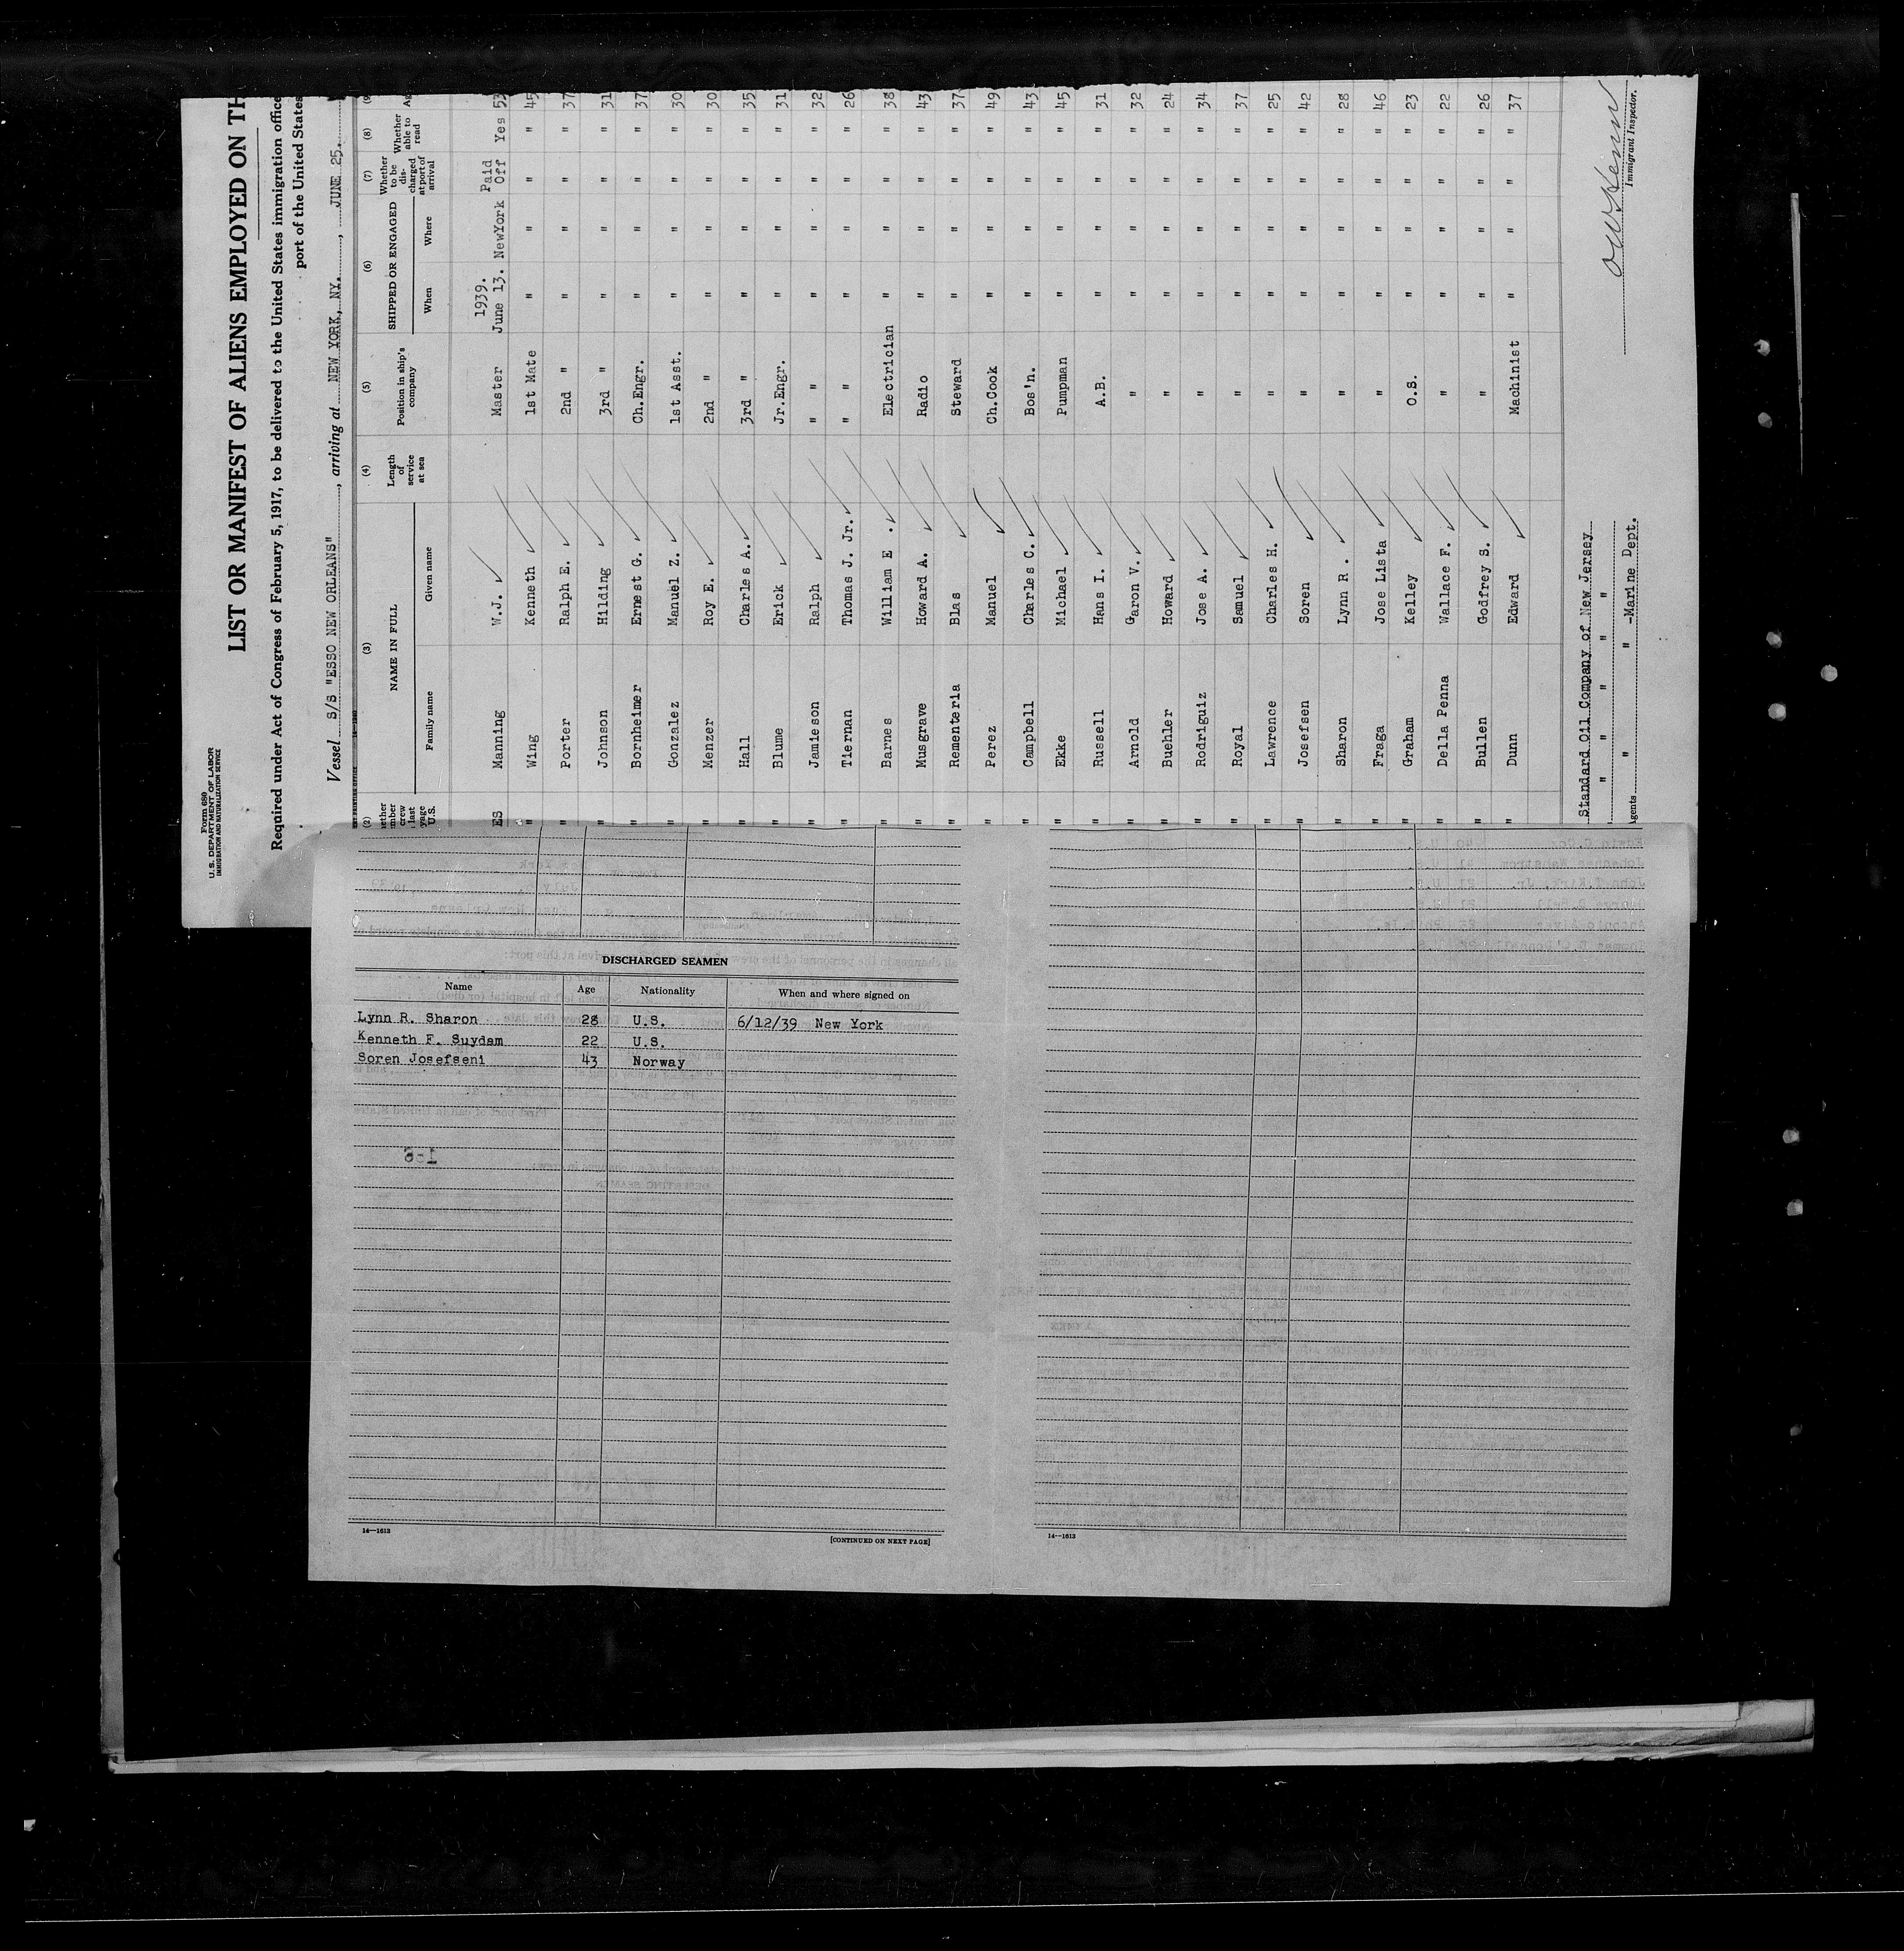 Form 680
U. S. DEPARTMENT OF LABOR
IMMIGRATION AND NATURALIZATION SERVICE
LIST OR MANIFEST OF ALIENS EMPLOYED ON TH
Required under Act of Congress of February 5, 1917, to be delivered to the United States immigration office
port of the United States
Vessel S/S "ESSO NEW ORLEANS", arriving at NEW YORK, NY., JUNE 25.
(2) (3) (4) (5) (6) (7) (8) (9
NAME IN FULL
Family name Given name
Length of service at sea
Position in ship's company
SHIPPED OR ENGAGED
When Where
Whether to be discharged at port of arrival
Whether able to read
Ag
1939.
ES Manning W.J. Master June 13. NewYork Paid Off Yes 53
" Wing Kenneth 1st Mate " " " " 45
" Porter Ralph E. 2nd " " " " " 37
" Johnson Hilding 3rd " " " " " 31
" Bornheimer Ernest G. Ch.Engr. " " " " 37
" Gonzalez Manuel Z. 1st Asst. " " " " 30
" Menzer Roy E. 2nd " " " " " 30
" Hall Charles A. 3rd " " " " " 35
" Blume Erick Jr.Engr. " " " " 31
" Jamieson Ralph " " " " " " 32
" Tiernan Thomas J. Jr. " " " " " " 26
" Barnes William E . Electrician " " " " 38
" Musgrave Howard A. Radio " " " " 43
" Rementeria Blas Steward " " " " 37
Perez Manuel Ch.Cook " " " " 49
" Campbell Charles C. Bos'n. " " " " 43
" Ekke Michael Pumpman " " " " 45
" Russell Hans I. A.B. " " " " 31
" Arnold Garon V. " " " " " 32
" Buehler Howard " " " " " 24
" Rodriguiz Jose A. " " " " " 34
" Royal Samuel " " " " " 37
" Lawrence Charles H. " " " " " 25
" Josefsen Soren " " " " " 42
" Sharon Lynn R . " " " " " 28
" Fraga Jose Lista " " " " " 46
" Graham Kelley O.S. " " " " 23
" Della Penna Wallace F. " " " " " 22
" Bullen Godfrey S. " " " " " 26
" Dunn Edward Machinist " " " " 37
Standard Oil Company of New Jersey
" " " " "
Agents " " -Marine Dept.
Immigrant Inspector.
DISCHARGED SEAMEN
Name Age Nationality When and where signed on
Lynn R. Sharon 28 U.S. 6/12/39 New York
Kenneth F. Suydam 22 U.S.
Soren Josefseni 43 Norway
14—1613
[CONTINUED ON NEXT PAGE]
14—1613